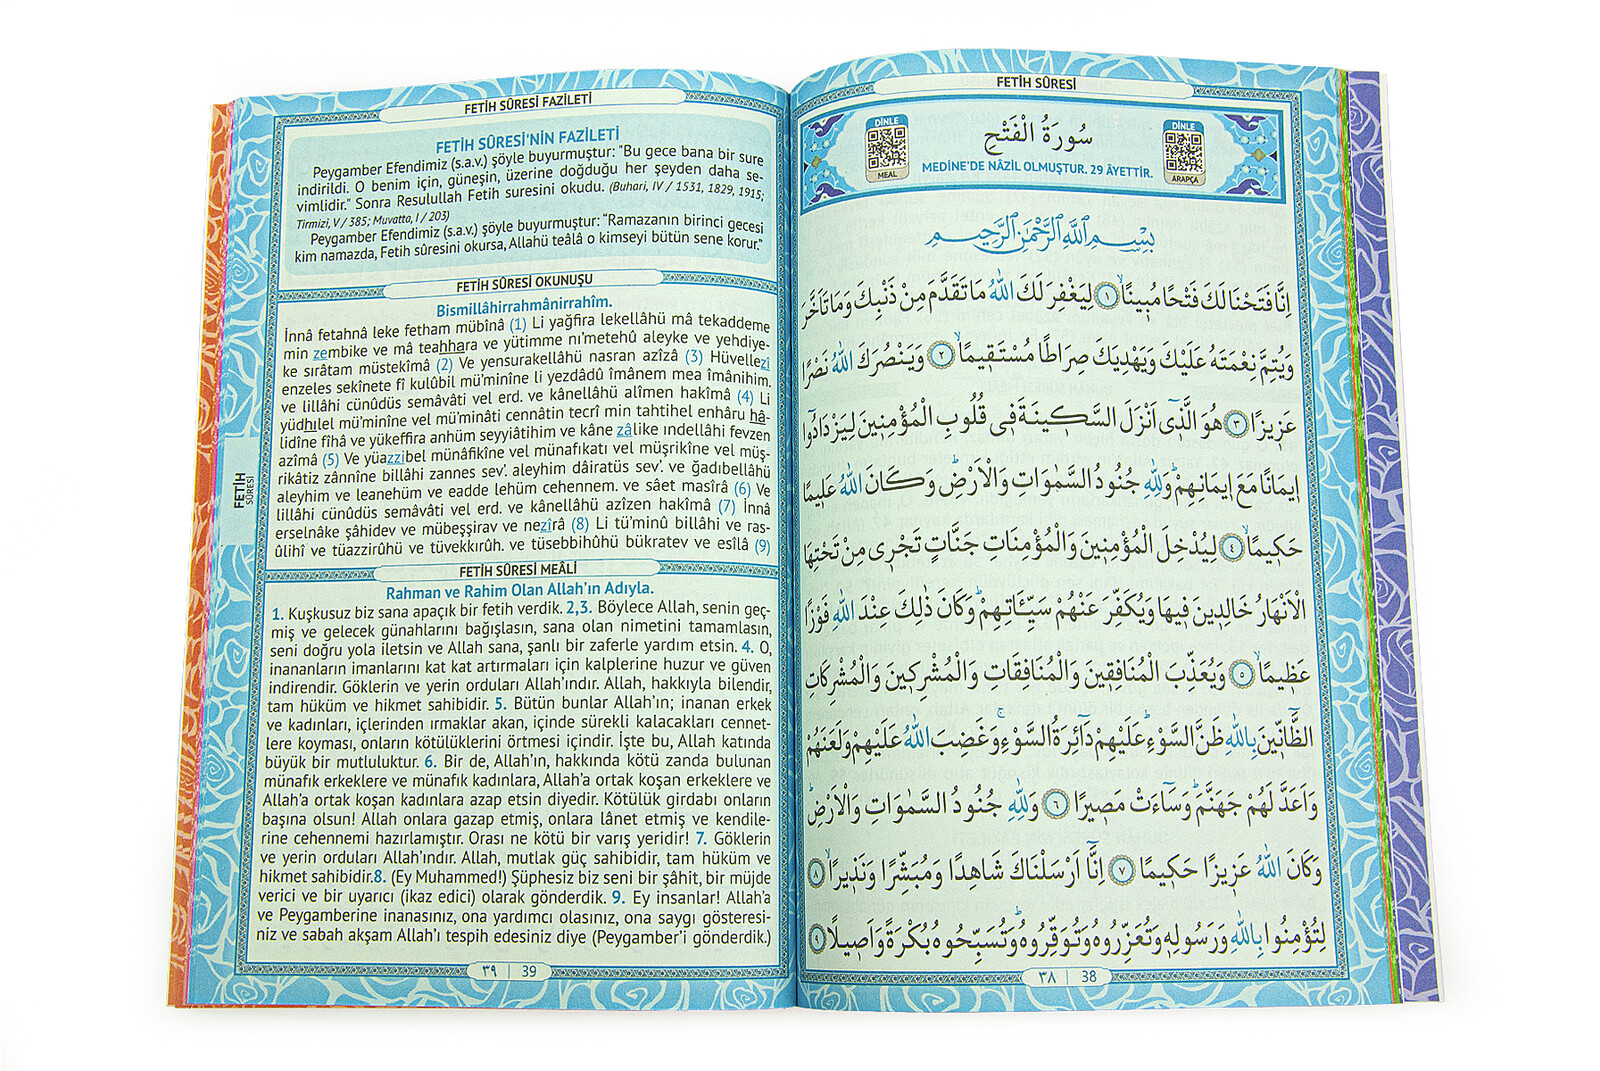 FETİH SÛRESİ
DİNLE
MEAL
سُورَةُ الْفَتْحِ
MEDİNE'DE NÂZİL OLMUŞTUR. 29 ÂYETTİR.
DİNLE
ARAPÇA
بِسْمِ اللّٰهِ الرَّحْمٰنِ الرَّحِيمِ
اِنَّا فَتَحْنَا لَكَ فَتْحًا مُبِينًاۙ ﴿١﴾ لِيَغْفِرَ لَكَ اللّٰهُ مَا تَقَدَّمَ مِنْ ذَنْبِكَ وَمَا تَاَخَّرَ
وَيُتِمَّ نِعْمَتَهُ عَلَيْكَ وَيَهْدِيَكَ صِرَاطًا مُسْتَقِيمًاۙ ﴿٢﴾ وَيَنْصُرَكَ اللّٰهُ نَصْرًا
عَزِيزًا ﴿٣﴾ هُوَ الَّذِٓي اَنْزَلَ السَّكِينَةَ فِي قُلُوبِ الْمُؤْمِنِينَ لِيَزْدَادُٓوا
اِيمَانًا مَعَ اِيمَانِهِمْۜ وَلِلّٰهِ جُنُودُ السَّمٰوَاتِ وَالْاَرْضِۜ وَكَانَ اللّٰهُ عَلِيمًا
حَكِيمًاۙ ﴿٤﴾ لِيُدْخِلَ الْمُؤْمِنِينَ وَالْمُؤْمِنَاتِ جَنَّاتٍ تَجْرِي مِنْ تَحْتِهَا
الْاَنْهَارُ خَالِدِينَ فِيهَا وَيُكَفِّرَ عَنْهُمْ سَيِّـَٔاتِهِمْۜ وَكَانَ ذٰلِكَ عِنْدَ اللّٰهِ فَوْزًا
عَظِيمًاۙ ﴿٥﴾ وَيُعَذِّبَ الْمُنَافِقِينَ وَالْمُنَافِقَاتِ وَالْمُشْرِكِينَ وَالْمُشْرِكَاتِ
الظَّٓانِّينَ بِاللّٰهِ ظَنَّ السَّوْءِۜ عَلَيْهِمْ دَٓائِرَةُ السَّوْءِۚ وَغَضِبَ اللّٰهُ عَلَيْهِمْ وَلَعَنَهُمْ
وَاَعَدَّ لَهُمْ جَهَنَّمَۜ وَسَٓاءَتْ مَصِيرًا ﴿٦﴾ وَلِلّٰهِ جُنُودُ السَّمٰوَاتِ وَالْاَرْضِۜ
وَكَانَ اللّٰهُ عَزِيزًا حَكِيمًا ﴿٧﴾ اِنَّٓا اَرْسَلْنَاكَ شَاهِدًا وَمُبَشِّرًا وَنَذِيرًاۙ ﴿٨﴾
لِتُؤْمِنُوا بِاللّٰهِ وَرَسُولِهِ وَتُعَزِّرُوهُ وَتُوَقِّرُوهُۜ وَتُسَبِّحُوهُ بُكْرَةً وَاَصِيلًا ﴿٩﴾
٣٨ | 38
FETİH SÛRESİ FAZİLETİ
FETİH SÛRESİ'NİN FAZİLETİ
Peygamber Efendimiz (s.a.v.) şöyle buyurmuştur: "Bu gece bana bir sure
indirildi. O benim için, güneşin, üzerine doğduğu her şeyden daha se-
vimlidir." Sonra Resulullah Fetih suresini okudu. (Buhari, IV / 1531, 1829, 1915;
Tirmizi, V / 385; Muvatta, I / 203)
Peygamber Efendimiz (s.a.v.) şöyle buyurmuştur: "Ramazanın birinci gecesi
kim namazda, Fetih sûresini okursa, Allahü teâlâ o kimseyi bütün sene korur."
FETİH SÛRESİ OKUNUŞU
Bismillâhirrahmânirrahîm.
İnnâ fetahnâ leke fetham mübînâ (1) Li yağfira lekellâhü mâ tekaddeme
min zembike ve mâ teahhara ve yütimme nı'metehû aleyke ve yehdiye-
ke sırâtam müstekîmâ (2) Ve yensurakellâhü nasran azîzâ (3) Hüvellezî
enzeles sekînete fî kulûbil mü'minîne li yezdâdû îmânem mea îmânihim.
ve lillâhi cünûdüs semâvâti vel erd. ve kânellâhü alîmen hakîmâ (4) Li
yüdhılel mü'minîne vel mü'minâti cennâtin tecrî min tahtihel enhâru hâ-
lidîne fîhâ ve yükeffira anhüm seyyiâtihim ve kâne zâlike ındellâhi fevzen
azîmâ (5) Ve yüazzibel münâfikîne vel münafikatı vel müşrikîne vel müş-
rikâtiz zânnîne billâhi zannes sev'. aleyhim dâiratüs sev'. ve ğadıbellâhü
aleyhim ve leanehüm ve eadde lehüm cehennem. ve sâet masîrâ (6) Ve
lillâhi cünûdüs semâvâti vel erd. ve kânellâhü azîzen hakîmâ (7) İnnâ
erselnâke şâhidev ve mübeşşirav ve nezîrâ (8) Li tü'minû billâhi ve ras-
ûlihî ve tüazzirûhü ve tüvekkırûh. ve tüsebbihûhü bükratev ve esîlâ (9)
FETİH
SÛRESİ
FETİH SÛRESİ MEÂLİ
Rahman ve Rahim Olan Allah'ın Adıyla.
1. Kuşkusuz biz sana apaçık bir fetih verdik. 2,3. Böylece Allah, senin geç-
miş ve gelecek günahlarını bağışlasın, sana olan nimetini tamamlasın,
seni doğru yola iletsin ve Allah sana, şanlı bir zaferle yardım etsin. 4. O,
inananların imanlarını kat kat artırmaları için kalplerine huzur ve güven
indirendir. Göklerin ve yerin orduları Allah'ındır. Allah, hakkıyla bilendir,
tam hüküm ve hikmet sahibidir. 5. Bütün bunlar Allah'ın; inanan erkek
ve kadınları, içlerinden ırmaklar akan, içinde sürekli kalacakları cennet-
lere koyması, onların kötülüklerini örtmesi içindir. İşte bu, Allah katında
büyük bir mutluluktur. 6. Bir de, Allah'ın, hakkında kötü zanda bulunan
münafık erkeklere ve münafık kadınlara, Allah'a ortak koşan erkeklere ve
Allah'a ortak koşan kadınlara azap etsin diyedir. Kötülük girdabı onların
başına olsun! Allah onlara gazap etmiş, onlara lânet etmiş ve kendile-
rine cehennemi hazırlamıştır. Orası ne kötü bir varış yeridir! 7. Göklerin
ve yerin orduları Allah'ındır. Allah, mutlak güç sahibidir, tam hüküm ve
hikmet sahibidir.8. (Ey Muhammed!) Şüphesiz biz seni bir şâhit, bir müjde
verici ve bir uyarıcı (ikaz edici) olarak gönderdik. 9. Ey insanlar! Allah'a
ve Peygamberine inanasınız, ona yardımcı olasınız, ona saygı gösteresi-
niz ve sabah akşam Allah'ı tespih edesiniz diye (Peygamber'i gönderdik.)
٣٩ | 39